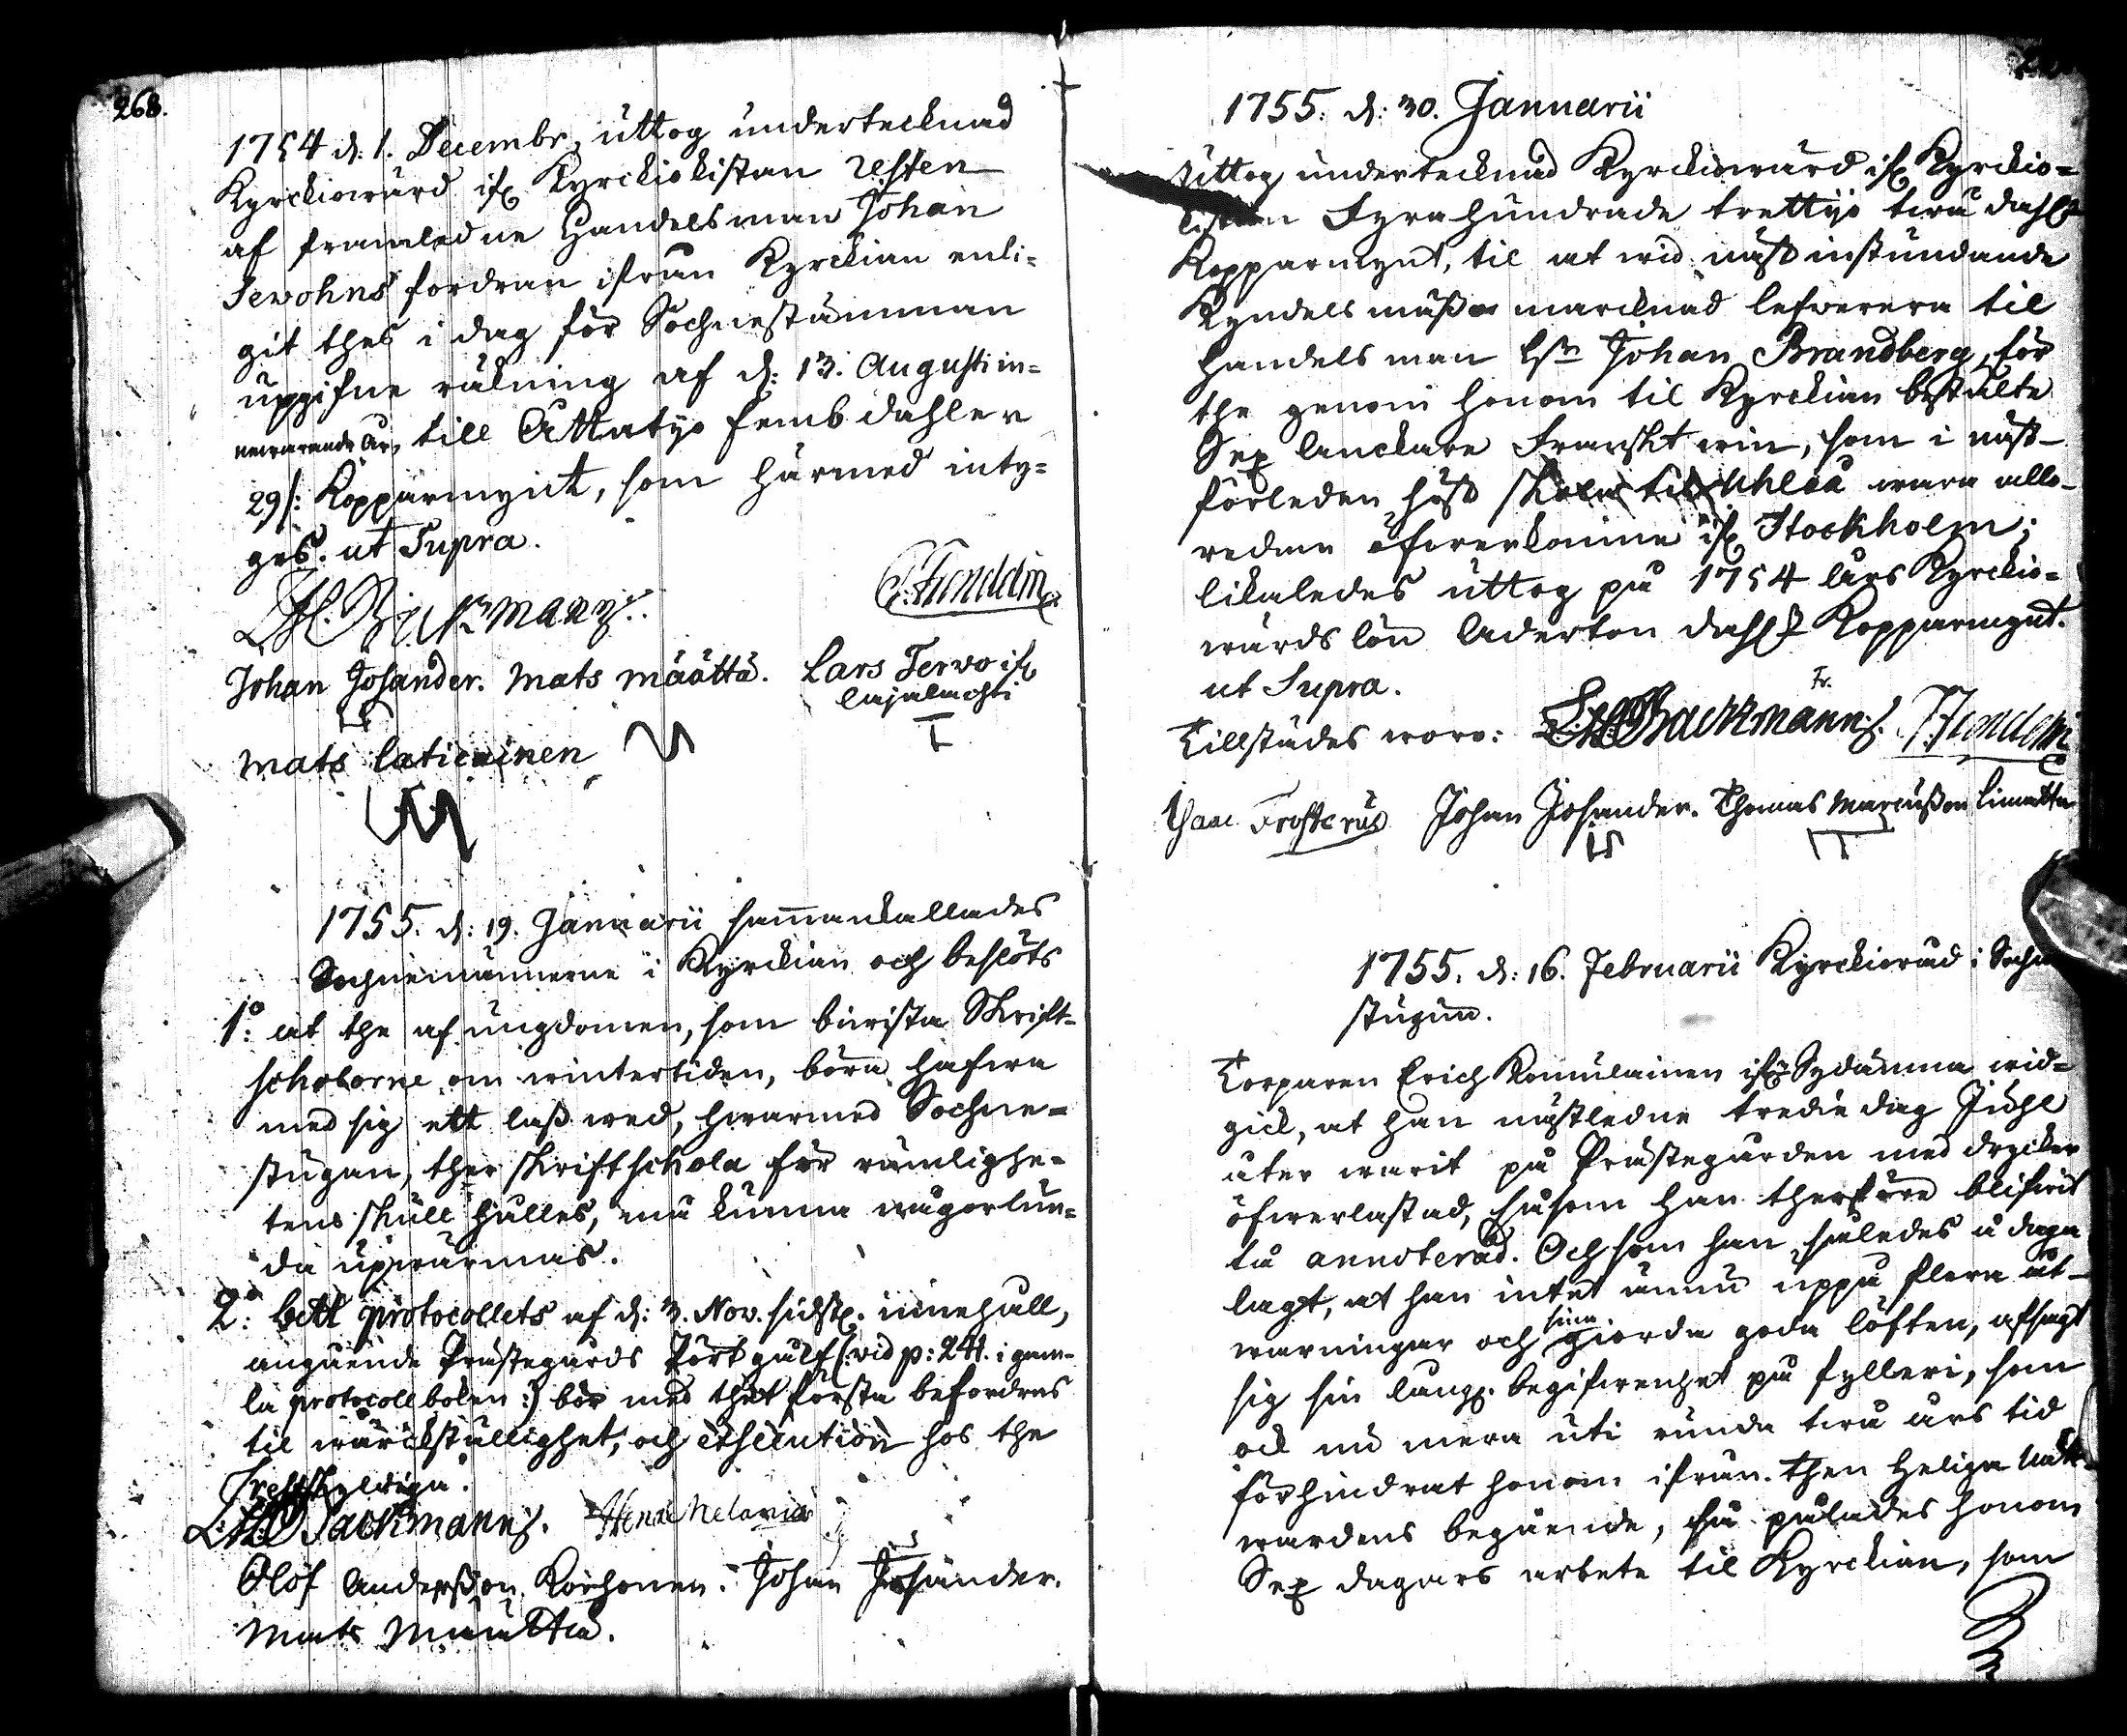 268.
1754 d. 1. Decembr, uttog undertecknad
Kyrckiowärd ifr Kyrckiokistan resten
af framledne Handelsman Johan
Jevohns fordran ifrån Kyrckian enli-
git thes i dag för Sochnestämman
uppgifne räkning af d: 13. Augusti in-
newarande år, till Åttatyo femb dahler
29/: Kopparmynt, som härmed inty-
ges. ut Supra.
Johan Josander. Mats Määttä. Lars Tervo ifr
lajalachti
Mats laticainen
1755. d: 19. Januarii sammankallades
Sochnemännerne i Kyrckian och beslöts
1o: at the af ungdomen, som bevista Skrift-
scholorne om wintertiden, böra hafwa
med sig ett lass wed, hwarmed Sochne-
stugan, ther skriftschola för rymlighe-
tens skull hålles, må kunna någorlun-
da upwärmas.
2o: bett protocollets af d: 3. Nov. sidst. innehåll,
angående Prästegårds Pört gulf (: vid p: 244. i gam-
la protocoll boken :) bör med thet första befordras
til wärckställighet, och execution hos the
Treskylduga.
L:H: Backmann. Henr. Helania
Olof Andersson Korhonen. Johan Josander.
Mats Määttä.
1755. d: 30. Januarii
Uttog undertecknad Kyrckiowärd ifr Kyrckio-
kistan Fyrahundrade trettijo twå dahlr
Kopparmynt, til at wid näst instundande
Kyndelsmässo marcknad lefwerera til
handelsman hr Johan Brandberg, för
the genom honom til Kyrckian bestälte
Sex anckare Franskt win, som i näst-
förleden höst skola til Uhleå wara alle-
redan öfwerkomne ifr Stockholm;
likaledes uttog på 1754 års Kyrckio-
wärds lön Aderton dahlr Kopparmynt.
ut Supra.
Tillstädes woro: L:H: Backmann.
Isaac Frosterus Johan Josander. Thomas Marcusson limatta
1755. d: 16. Februarii Kyrckioråd i Sochne
stugun.
Torparen Erich Komulainen ifr Sydänma wid-
gick, at han nästledne tredie dag Juhl
åter warit på Prästegården med drycker
öfwerlastad, såsom han therföre blifwit
tå annoterad. Och som han således å daga
lagt, at han intet ännu uppå flera åt-
warningar och sina giorda goda löften, afsagt
sig sin lång. begifwenhet på fylleri, som
ock nu mera uti runda twå års tid
förhindrat honom ifrån then Heliga Natt-
wardens begående, så pålades honom
Sex dagars arbete til Kyrckian, som